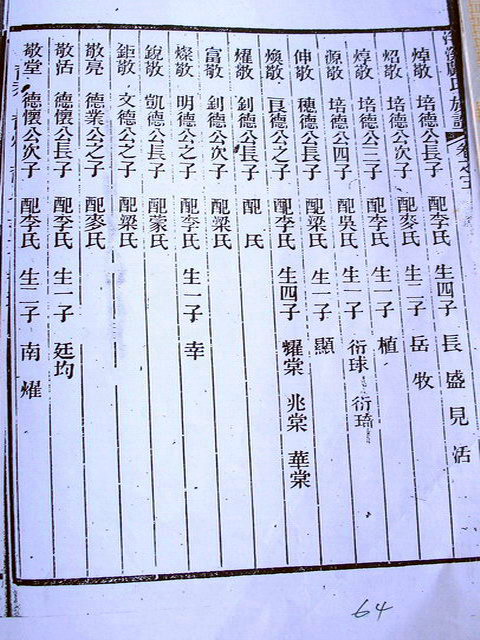 族譜
焯敬 培德公長子 配李氏 生四子 長 盛 見 活
炤敬 培德公次子 配麥氏 生二子 岳 牧
焞敬 培德公三子 配李氏 生一子 植
源敬 培德公四子 配吳氏 生一子 衍球 衍琦
伸敬 穗德公長子 配梁氏 生一子 顯
煥敬 良德公之子 配李氏 生四子 耀棠 兆棠 華棠
燿敬 釗德公長子 配 氏
富敬 釗德公次子 配梁氏
燦敬 明德公之子 配李氏 生一子 幸
銳敬 凱德公長子 配蒙氏
鉅敬 文德公之子 配梁氏
敬亮 德業公之子 配麥氏
敬恬 德懷公長子 配李氏 生一子 廷均
敬堂 德懷公次子 配李氏 生二子 南 燿
64